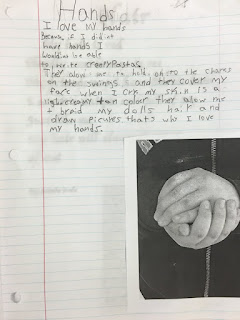 Hands
I love my hands
Because if I didnt
have hands I
wouldnt be able
to write creepypastas.
They alow me to hold onto the chanes
on the swings and they cover my
face when I cry my skin is a
light creamy tan colour they allow me
to braid my dolls hair and
draw picures thats why I love
my hands.